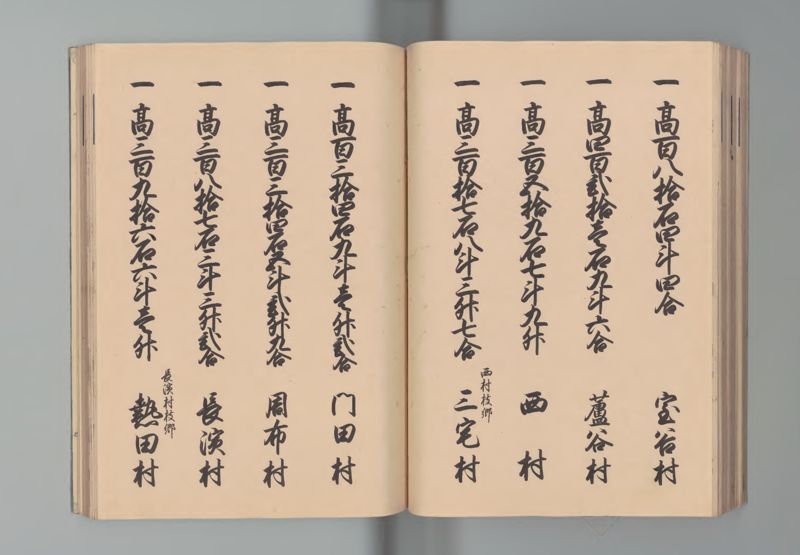 一高百八拾石四斗四合 室谷村
一高四百弐拾壱石九斗六合 蘆谷村
一高三百五拾九石七斗九升 西村
一高三百拾七石八斗三升七合 西村枝郷 三宅村
一高百三拾四石九斗壱升弐合 門田村
一高三百三拾四石五斗弐升九合 周布村
一高三百八拾七石三斗三升弐合 長濱村
一高三百九拾六石六斗壱升 長濱村枝郷 熱田村